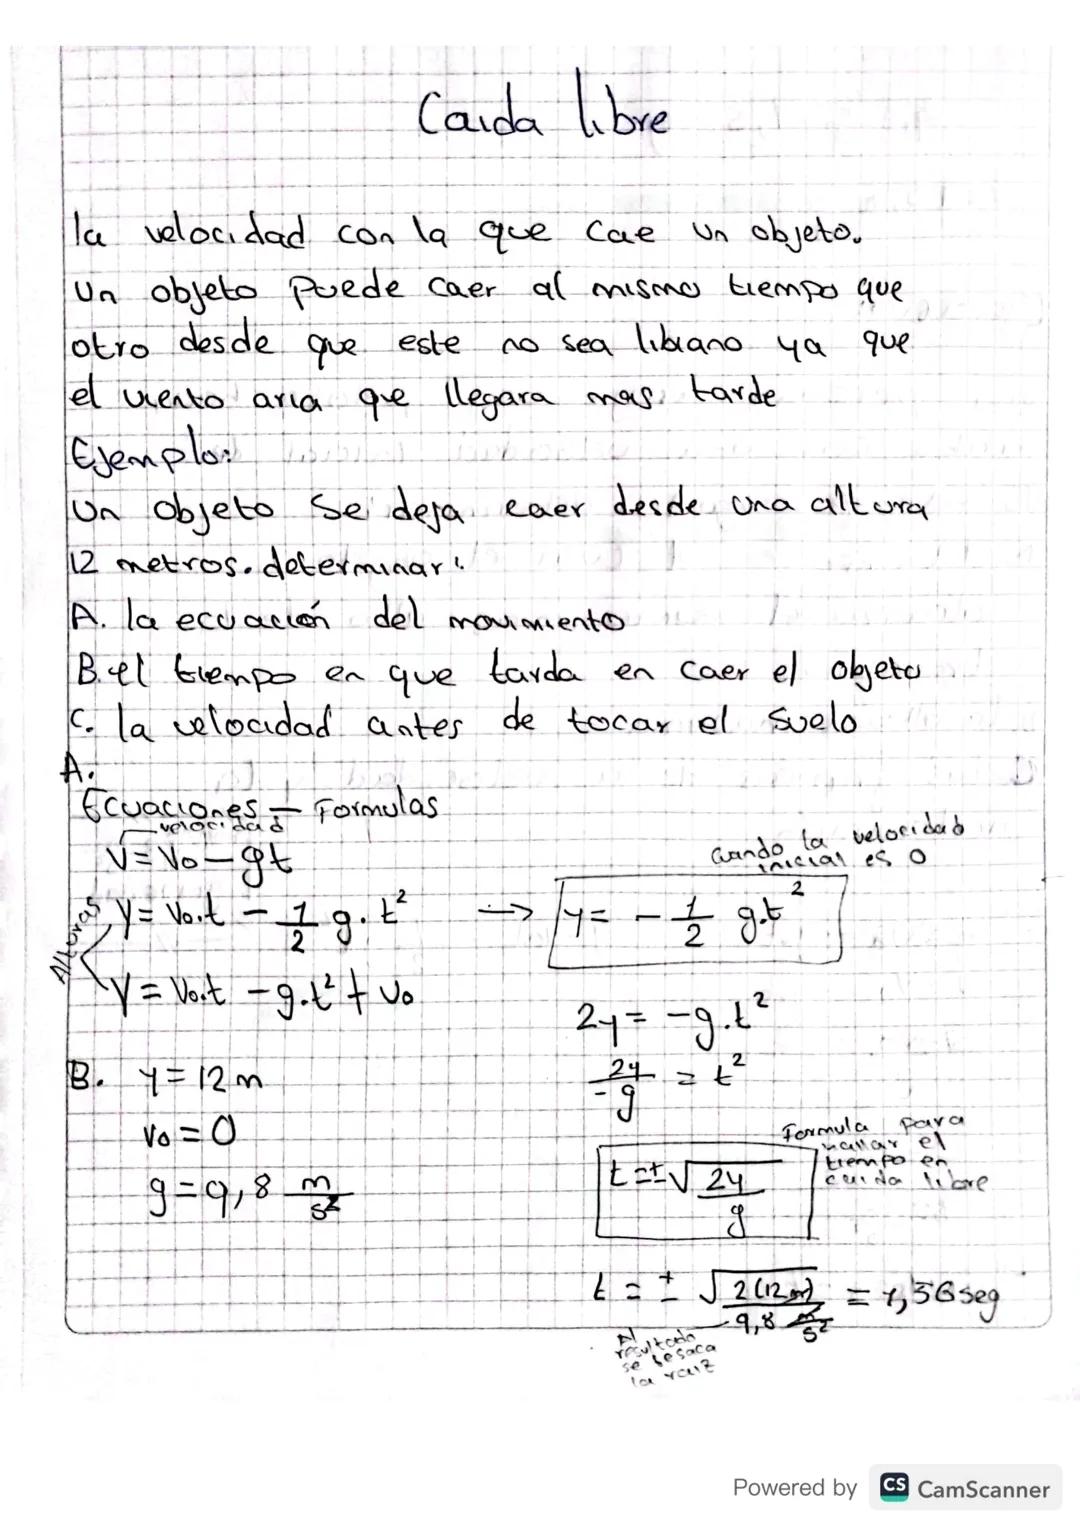 Caida libre
la velocidad con la que cae un objeto.
Un objeto puede caer al mismo tiempo que
otro desde que este no sea libiano ya que
el viento aria que llegara mas tarde
Ejemplo:
Un objeto se deja caer desde una altura
12 metros. determinar:
A. la ecuación del movimiento
B. el tiempo en que tarda en caer el objeto
C. la velocidad antes de tocar el suelo
A.
Ecuaciones – Formulas
velocidad
V = Vo – gt
cuando la velocidad
inicial es 0
Alturas
y = Vo.t – 1/2 g. t² → y = – 1/2 g.t²
y = Vo.t – g.t² + Vo
2y = –g.t²
B. y = 12 m
2y/–g = t²
Vo = 0
Formula para
hallar el
tiempo en
caida libre
g = 9,8 m/s²
t = ± √2y/g
t = ± √2(12m)/–9,8 m/s² = 1,56 seg
Al
resultado
se le saca
la raiz
Powered by CS CamScanner